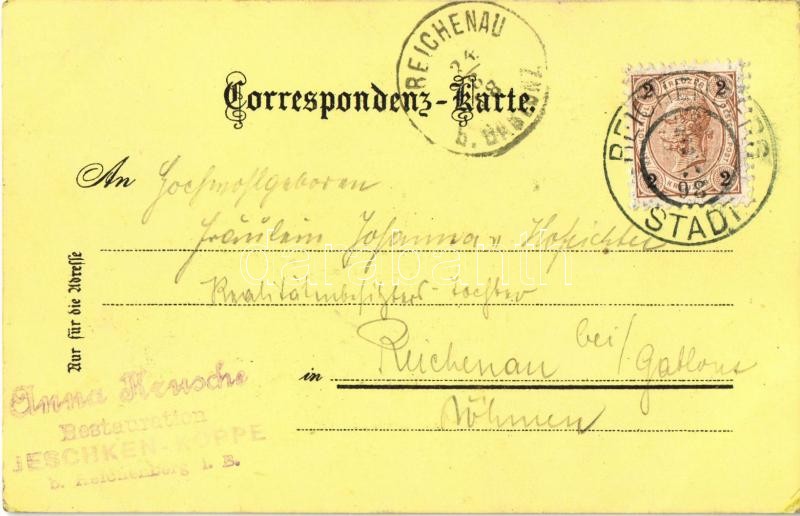 REICHENAU
24/ 98
b. GABLONZ
Correspondenz-Karte.
2 2
2 2
REICHENBERG
98
STADT
An Hochwohlgeboren
Fräulein Johanna Hofrichter
Realitätenbesitzers-Tochter
in Reichenau bei/Gablonz
Böhmen
Nur für die Adresse
Anna Hrusche
Restauration
JESCHKEN-KOPPE
b. Reichenberg i. B.
darabanth